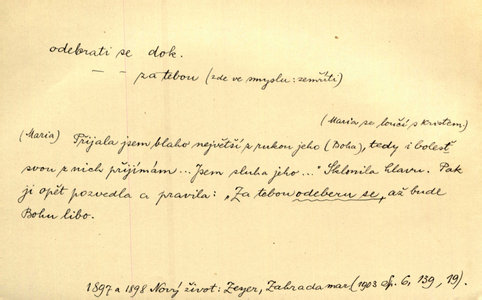 odebrati se dok.
— — za tebou (zde ve smyslu: zemříti)
(Maria se loučí s Kristem)
(Maria) Přijala jsem blaho největší z rukou jeho (Boha), tedy i bolest
svou z nich přijímám... Jsem sluha jeho..." Sklonila hlavu. Pak
ji opět pozvedla a pravila: „Za tebou odeberu se, až bude
Bohu libo.
1897 a 1898 Nový život: Zeyer, Zahrada mar. (1903 sp. 6, 139, 19).